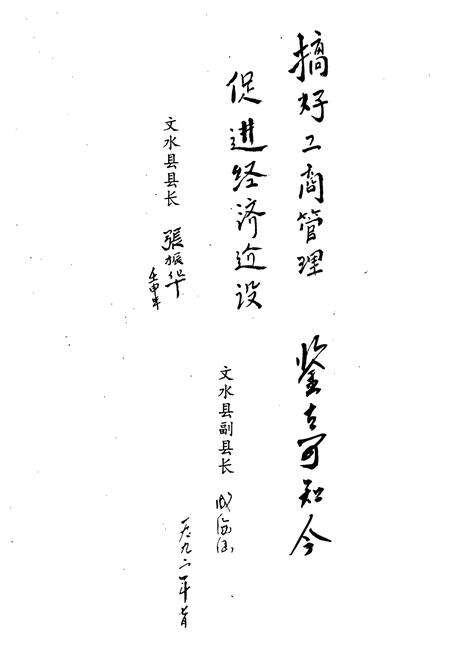 搞好工商管理
促进经济迠设
文水县县长 張振华
壬申年
鉴古可知今
文水县副县长
一九九二年七月